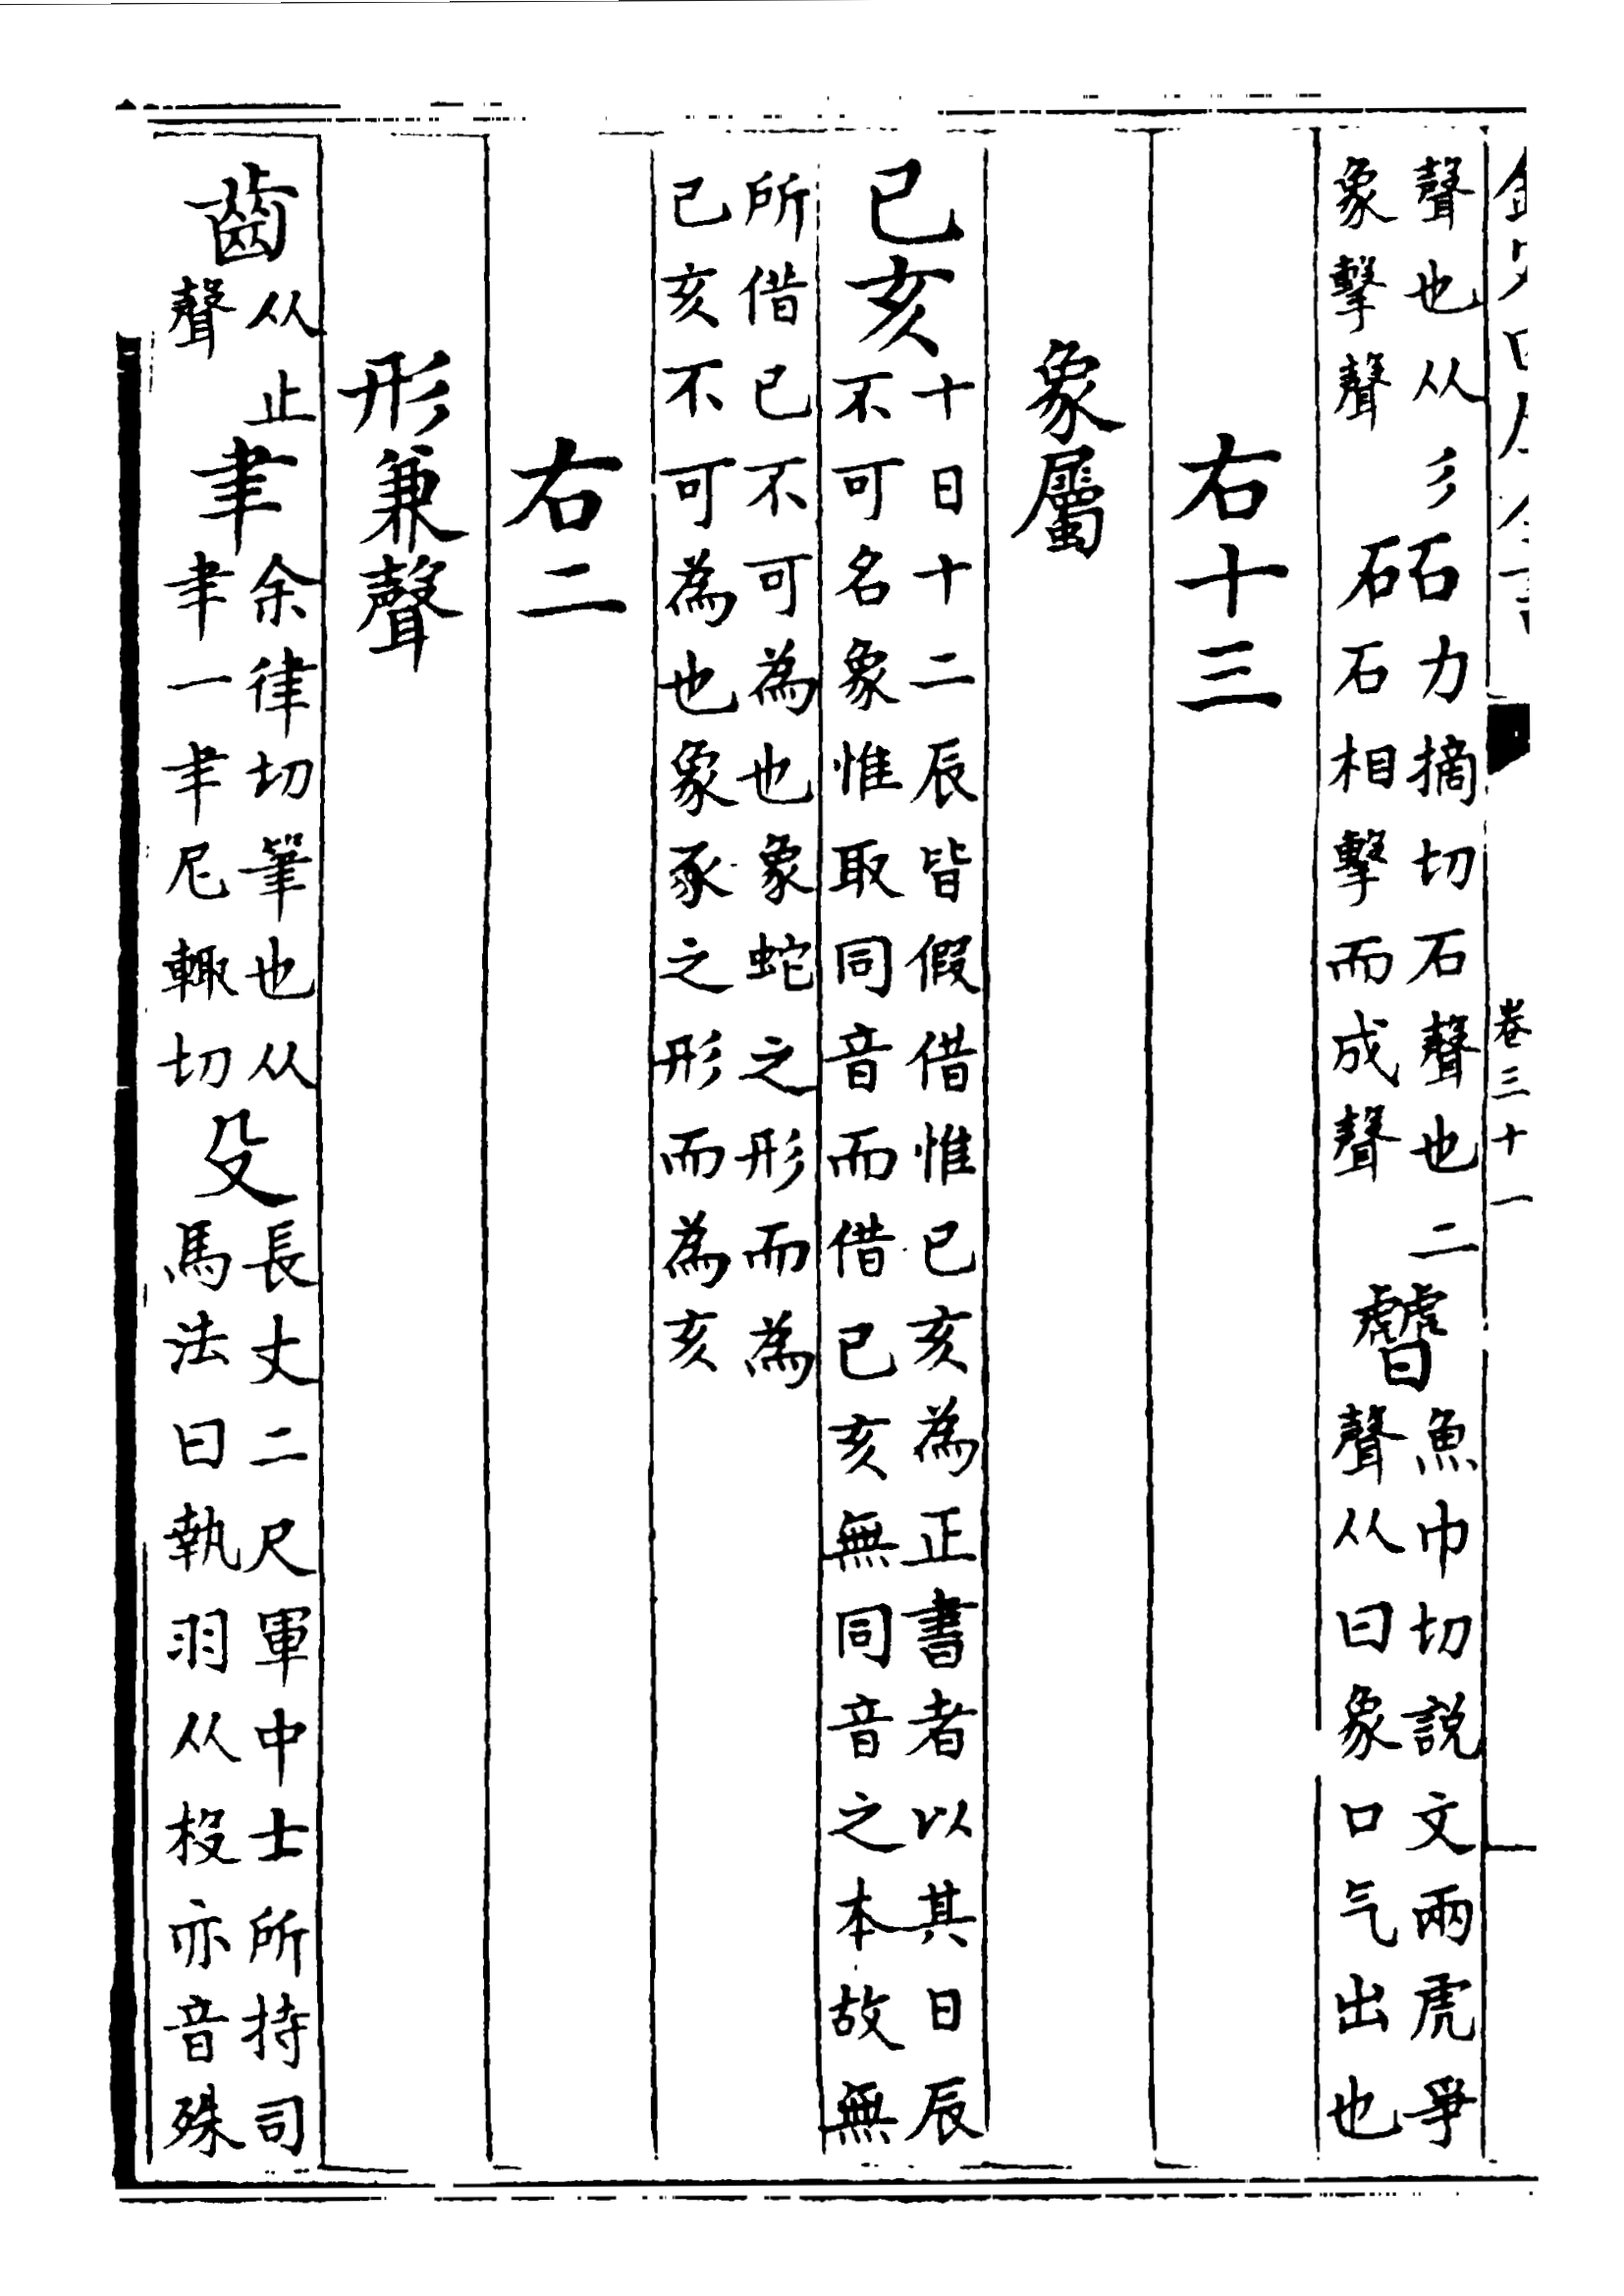 卷三十一
聲也从彡象擊聲 砳力摘切石聲也二石相擊而成聲 䖐魚巾切説文兩虎爭聲从曰象口气出也
右十三
象屬
巳亥十日十二辰皆假借惟巳亥為正書者以其日辰不可名象惟取同音而借巳亥無同音之本故無
所借巳不可為也象蛇之形而為巳亥不可為也象豕之形而為亥
右二
形兼聲
齒从止聲 聿余律切筆也从𦘒一𦘒尼輒切 殳長丈二尺軍中士所持司馬法曰執羽从杸亦音殊